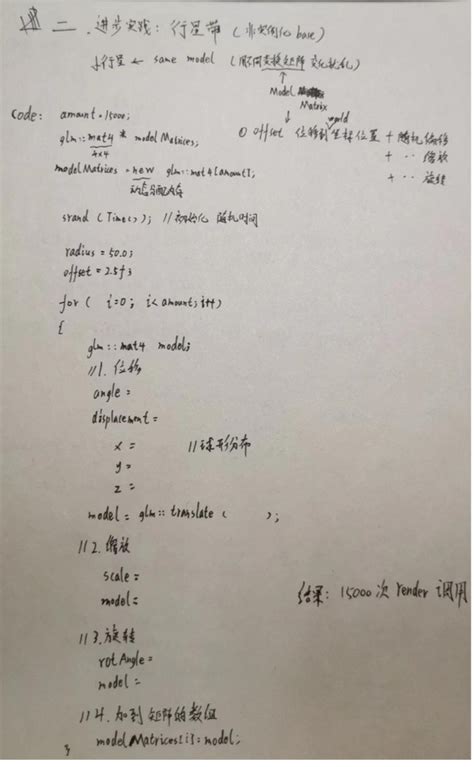 二、进步实践：行星带（非实例化 base）
小行星 ← same model （用不同变换矩阵 变化状化）
Model Matrix
world
① offset 位移到坐标位置 + 随机偏移
+ ·· 缩放
+ ·· 旋转
Code: amount = 15000;
glm::mat4 * modelMatrices;
4x4
modelMatrices = new glm::mat4[amount];
动态分配内存
srand (Time()); //初始化 随机时间
radius = 50.0;
offset = 2.5f;
for ( i=0; i<amount; i++)
{
glm::mat4 model;
//1. 位移
angle =
displacement =
x = //球形分布
y =
z =
model = glm::translate ( );
//2. 缩放
scale =
model =
结果: 15000 次 render 调用
//3. 旋转
rotAngle =
model =
//4. 加到 矩阵的数组
modelMatrices[i] = model;
}